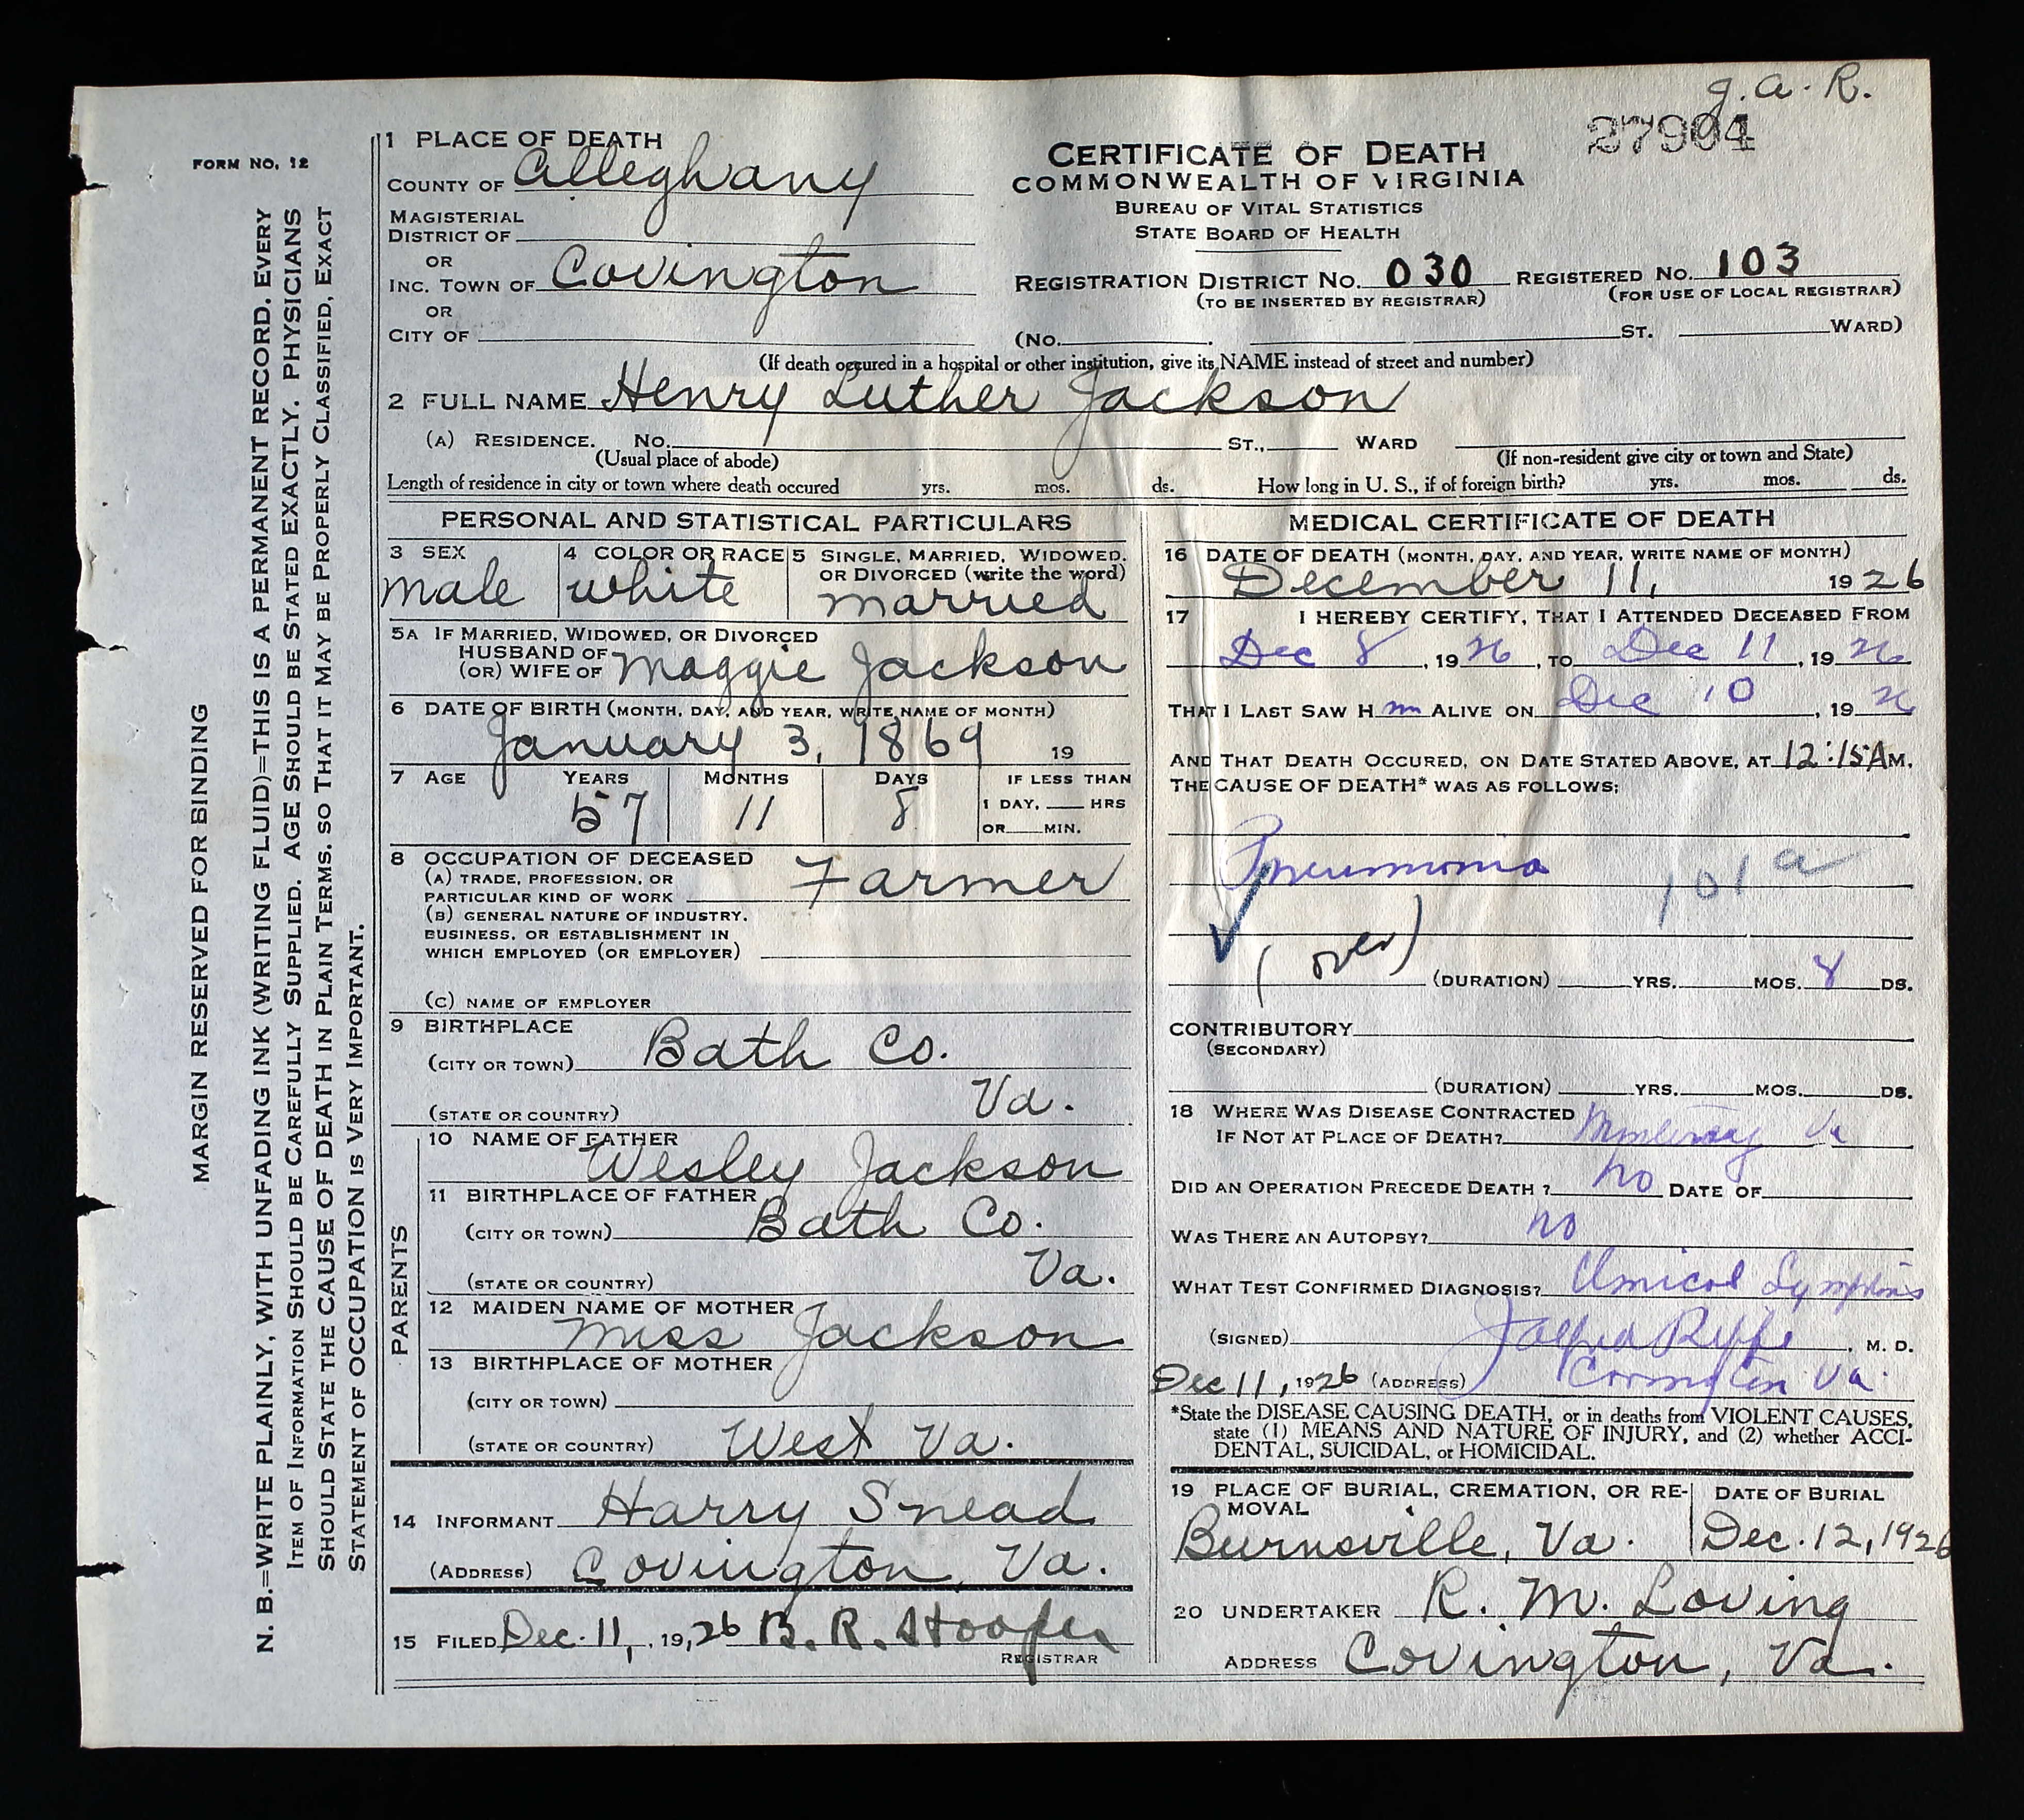 J. A. R.
27904
FORM NO. 12
MARGIN RESERVED FOR BINDING
N. B.=WRITE PLAINLY, WITH UNFADING INK (WRITING FLUID)=THIS IS A PERMANENT RECORD. EVERY
ITEM OF INFORMATION SHOULD BE CAREFULLY SUPPLIED. AGE SHOULD BE STATED EXACTLY. PHYSICIANS
SHOULD STATE THE CAUSE OF DEATH IN PLAIN TERMS. SO THAT IT MAY BE PROPERLY CLASSIFIED, EXACT
STATEMENT OF OCCUPATION IS VERY IMPORTANT.
1 PLACE OF DEATH
COUNTY OF Alleghany
MAGISTERIAL
DISTRICT OF
OR
INC. TOWN OF Covington
OR
CITY OF
CERTIFICATE OF DEATH
COMMONWEALTH OF VIRGINIA
BUREAU OF VITAL STATISTICS
STATE BOARD OF HEALTH
REGISTRATION DISTRICT NO. 030 REGISTERED NO. 103
(TO BE INSERTED BY REGISTRAR) (FOR USE OF LOCAL REGISTRAR)
(NO. ST. WARD)
(If death occured in a hospital or other institution, give its NAME instead of street and number)
2 FULL NAME Henry Luther Jackson
(A) RESIDENCE. NO. ST., WARD
(Usual place of abode) (If non-resident give city or town and State)
Length of residence in city or town where death occured yrs. mos. ds. How long in U. S., if of foreign birth? yrs. mos. ds.
PERSONAL AND STATISTICAL PARTICULARS
3 SEX 4 COLOR OR RACE 5 SINGLE, MARRIED, WIDOWED,
OR DIVORCED (write the word)
male white married
5A IF MARRIED, WIDOWED, OR DIVORCED
HUSBAND OF
(OR) WIFE OF Maggie Jackson
6 DATE OF BIRTH (MONTH, DAY, AND YEAR, WRITE NAME OF MONTH)
January 3, 1869 19
7 AGE YEARS MONTHS DAYS IF LESS THAN
57 11 8 1 DAY, HRS
OR MIN.
8 OCCUPATION OF DECEASED
(A) TRADE, PROFESSION, OR
PARTICULAR KIND OF WORK Farmer
(B) GENERAL NATURE OF INDUSTRY.
BUSINESS, OR ESTABLISHMENT IN
WHICH EMPLOYED (OR EMPLOYER)
(C) NAME OF EMPLOYER
9 BIRTHPLACE
(CITY OR TOWN) Bath Co.
(STATE OR COUNTRY) Va.
PARENTS
10 NAME OF FATHER
Wesley Jackson
11 BIRTHPLACE OF FATHER
(CITY OR TOWN) Bath Co.
(STATE OR COUNTRY) Va.
12 MAIDEN NAME OF MOTHER
Miss Jackson
13 BIRTHPLACE OF MOTHER
(CITY OR TOWN)
(STATE OR COUNTRY) West Va.
14 INFORMANT Harry Snead
(ADDRESS) Covington, Va.
15 FILED Dec. 11, 1926 B. R. Hooper
REGISTRAR
MEDICAL CERTIFICATE OF DEATH
16 DATE OF DEATH (MONTH, DAY, AND YEAR, WRITE NAME OF MONTH)
December 11, 1926
17 I HEREBY CERTIFY, THAT I ATTENDED DECEASED FROM
Dec 8, 1926, TO Dec 11, 1926
THAT I LAST SAW H im ALIVE ON Dec 10, 1926
AND THAT DEATH OCCURED, ON DATE STATED ABOVE, AT 12:15 AM.
THE CAUSE OF DEATH* WAS AS FOLLOWS:
Pneumonia 101a
(over)
(DURATION) YRS. MOS. 8 DS.
CONTRIBUTORY
(SECONDARY)
(DURATION) YRS. MOS. DS.
18 WHERE WAS DISEASE CONTRACTED
IF NOT AT PLACE OF DEATH? Va
DID AN OPERATION PRECEDE DEATH? no DATE OF
WAS THERE AN AUTOPSY? no
WHAT TEST CONFIRMED DIAGNOSIS? Clinical Symptoms
(SIGNED) M. D.
Dec 11, 1926 (ADDRESS) Covington Va.
*State the DISEASE CAUSING DEATH, or in deaths from VIOLENT CAUSES,
state (1) MEANS AND NATURE OF INJURY, and (2) whether ACCI-
DENTAL, SUICIDAL, or HOMICIDAL.
19 PLACE OF BURIAL, CREMATION, OR RE- DATE OF BURIAL
MOVAL
Burnsville, Va. Dec. 12, 1926
20 UNDERTAKER R. M. Loving
ADDRESS Covington, Va.